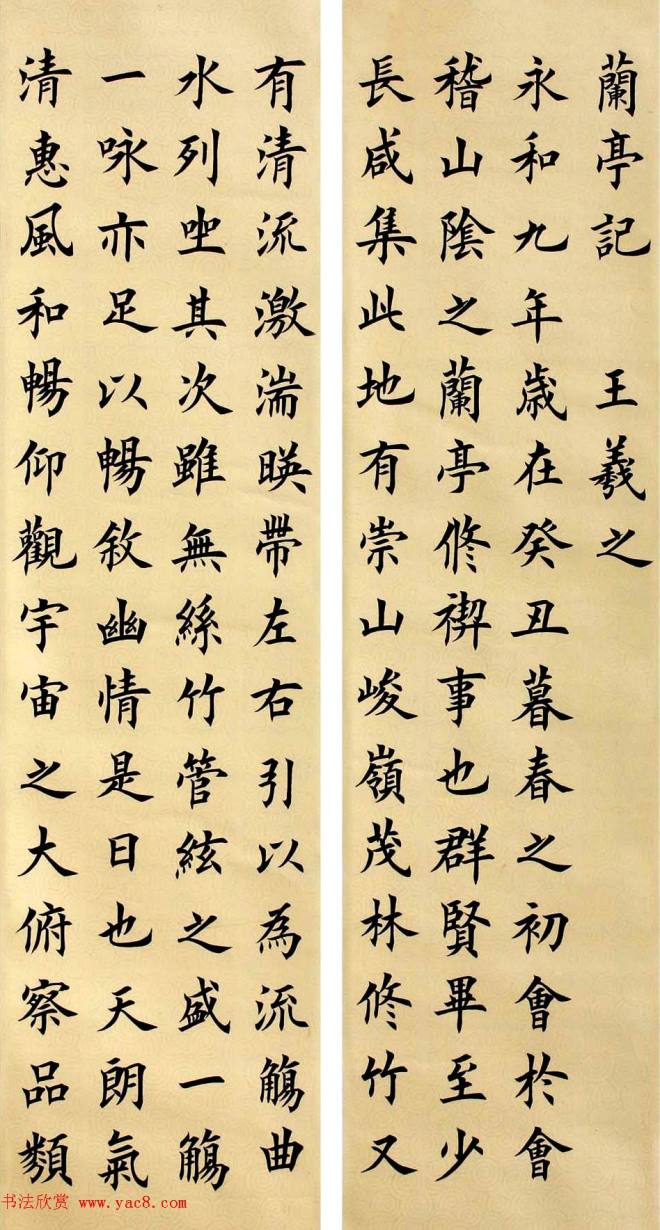 蘭亭記 王羲之
永和九年歲在癸丑暮春之初會於會
稽山陰之蘭亭修禊事也群賢畢至少
長咸集此地有崇山峻嶺茂林修竹又
有清流激湍暎帶左右引以為流觴曲
水列坐其次雖無絲竹管絃之盛一觴
一咏亦足以暢敘幽情是日也天朗氣
清惠風和暢仰觀宇宙之大俯察品類
书法欣赏 www.yac8.com